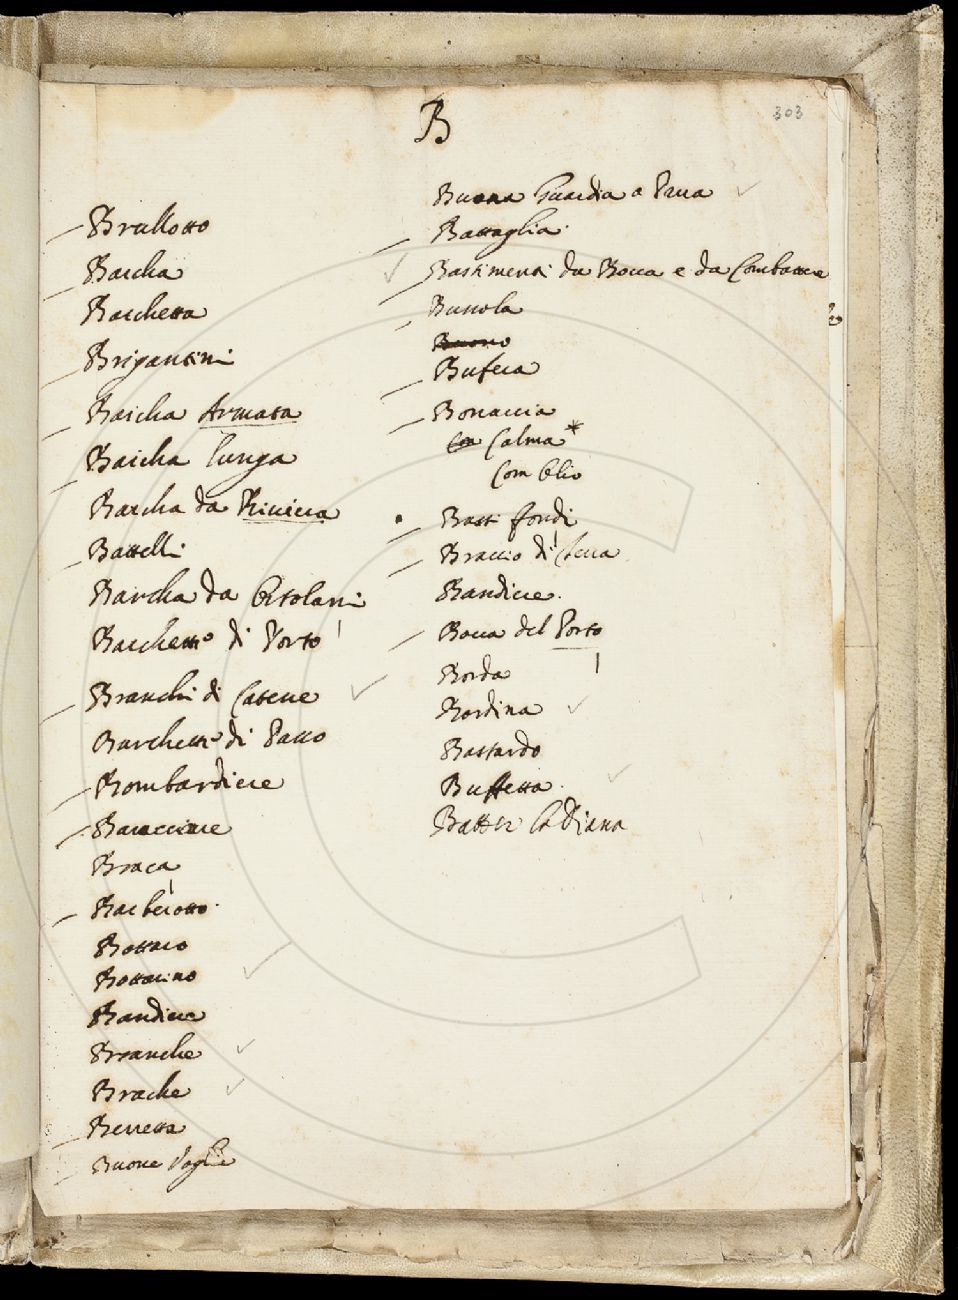 B
303
Brullotto
Barcha
Barchetta
Brigantini
Barcha Armata
Barcha lunga
Barcha da Riviera
Battelli
Barcha da Ortolani
Barchetto di Porto
Branchi di Catene
Barchetti di
Bombardiere
Braca
Barberotto
Bottaro
Bottarino
Bandiere
Branche
Brache
Berretta
Buone Voglie
Buona Guardia a
Battaglia
Bastimenti da Bocca e da Combattere
Bussola
Buono
Bufera
Bonaccia
con Calma*
Com Olio
Bassi fondi
Braccio di
Bandiere.
Bocca del Porto
Borda
Bordina
Bastardo
Buffetta.
Batter la Diana